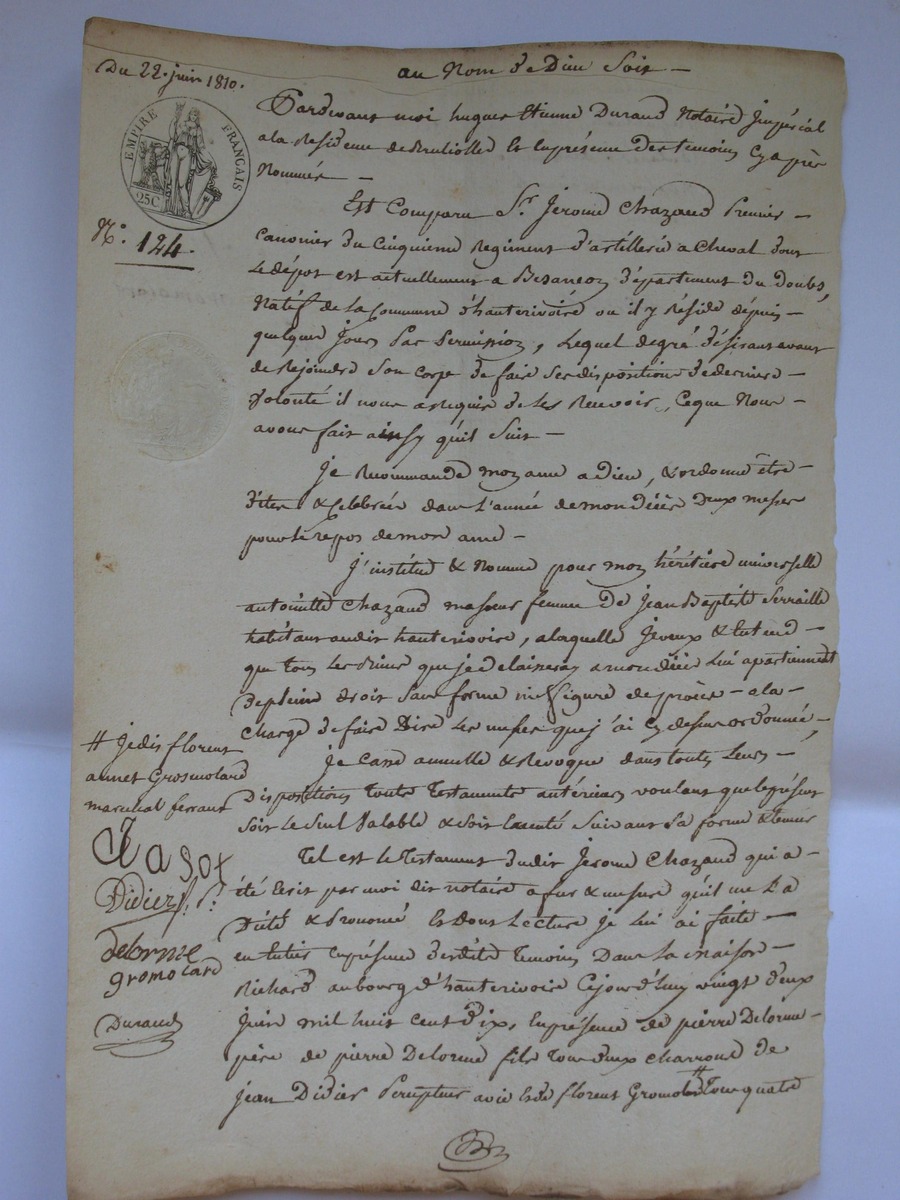 Du 22. juin 1810.
au Nom de Dieu Soit
EMPIRE FRANÇAIS
25C
N.º 124.
Pardevant moi hugues Etienne Durand Notaire Jmpérial
a la Residence de Brulliolle Et En présence des temoins Cy après
Nommés
Est Comparu S.r Jerome Chazaud Premier
canonier du Cinquieme Regiment d'artillerie a Cheval dont
Le dépot est actuellement a Besançon département du Doubs,
Natif de la Commune d'hauterivoire ou il y Réside dépuis
quelques Jours Par Permission, Lequel de gré désirant avant
de Rejoindre Son Corps de faire Ses dispositions de derniere
Volonté il nous a Requis de Les Recevoir, Ceque Nous
avons fait ainsy qu'il Suit
Je Recommande mon ame a Dieu, & ordonne être
dites & Celebrées dans L'année de mon décès Deux messes
pour le repos de mon ame
J'institue & Nomme pour mon héritière universelle
antoinette Chazaud ma soeur femme De Jean Baptiste Serraille
habitant audit hauterivoire, a laquelle Je veux & Entend
que tous Les biens que je delaisseray a mon décès Lui apartiennent
de plein droit Sans forme ni figure de procès a la
Charge de faire Dire Les messes que j'ai Cy dessus ordonnée,
Je Casse annulle & Revoque dans toutes Leurs
Dispositions Toute Testaments antérieurs voulant que le présent
Soit Le Seul Valable & Soit Executé Suivant Sa forme & teneur
Tel est Le Testament dudit Jerome Chazaud qui a
été Ecrit par moi dit notaire a fur & mesure qu'il me L'a
Dicté & Prononcé Et Dont Lecture Je Lui ai faite
en Entier En présence desdits Temoins Dans La maison
Richard au bourg d'hauterivoire Cejourd'huy vingt deux
Juin mil huit Cent Dix, En présence de pierre Delorme
père de pierre Delorme fils Tous deux charrons de
jean Didier Percepteur avie Et de florent Gromolard # Tous quatre
# Je dis florent
annet Grosmolard
marechal ferrant
Didier
delorme
gromolard
Durand